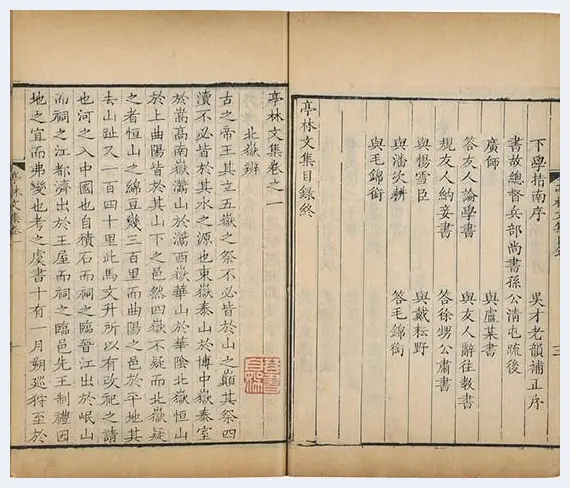 下學指南序 吳才老韻補正序
書故總督兵部尚書孫公清屯疏後
廣師 與盧某書
答友人論學書 與友人辭往教書
規友人納妾書 答徐甥公肅書
與楊雪臣 與戴耘野
與潘次耕 答毛錦銜
與毛錦銜
亭林文集目錄終
亭林文集卷之一
北嶽辨
古之帝王其立五嶽之祭不必皆於山之巔其祭四
瀆不必皆於其水之源也東嶽泰山於博中嶽泰室
於嵩高南嶽灊山於灊西嶽華山於華陰北嶽恒山
於上曲陽皆於其山下之邑然四嶽不疑而北嶽疑
之者恒山之綿亙幾三百里而曲陽之邑於平地其
去山趾又一百四十里此馬文升所以有改祀之請
也河之入中國也自積石而祠之臨晉江出於岷山
而祠之江都濟出於王屋而祠之臨邑先王制禮因
地之宜而弗變也考之虞書十有一月朔巡狩至於
亭林文集卷一